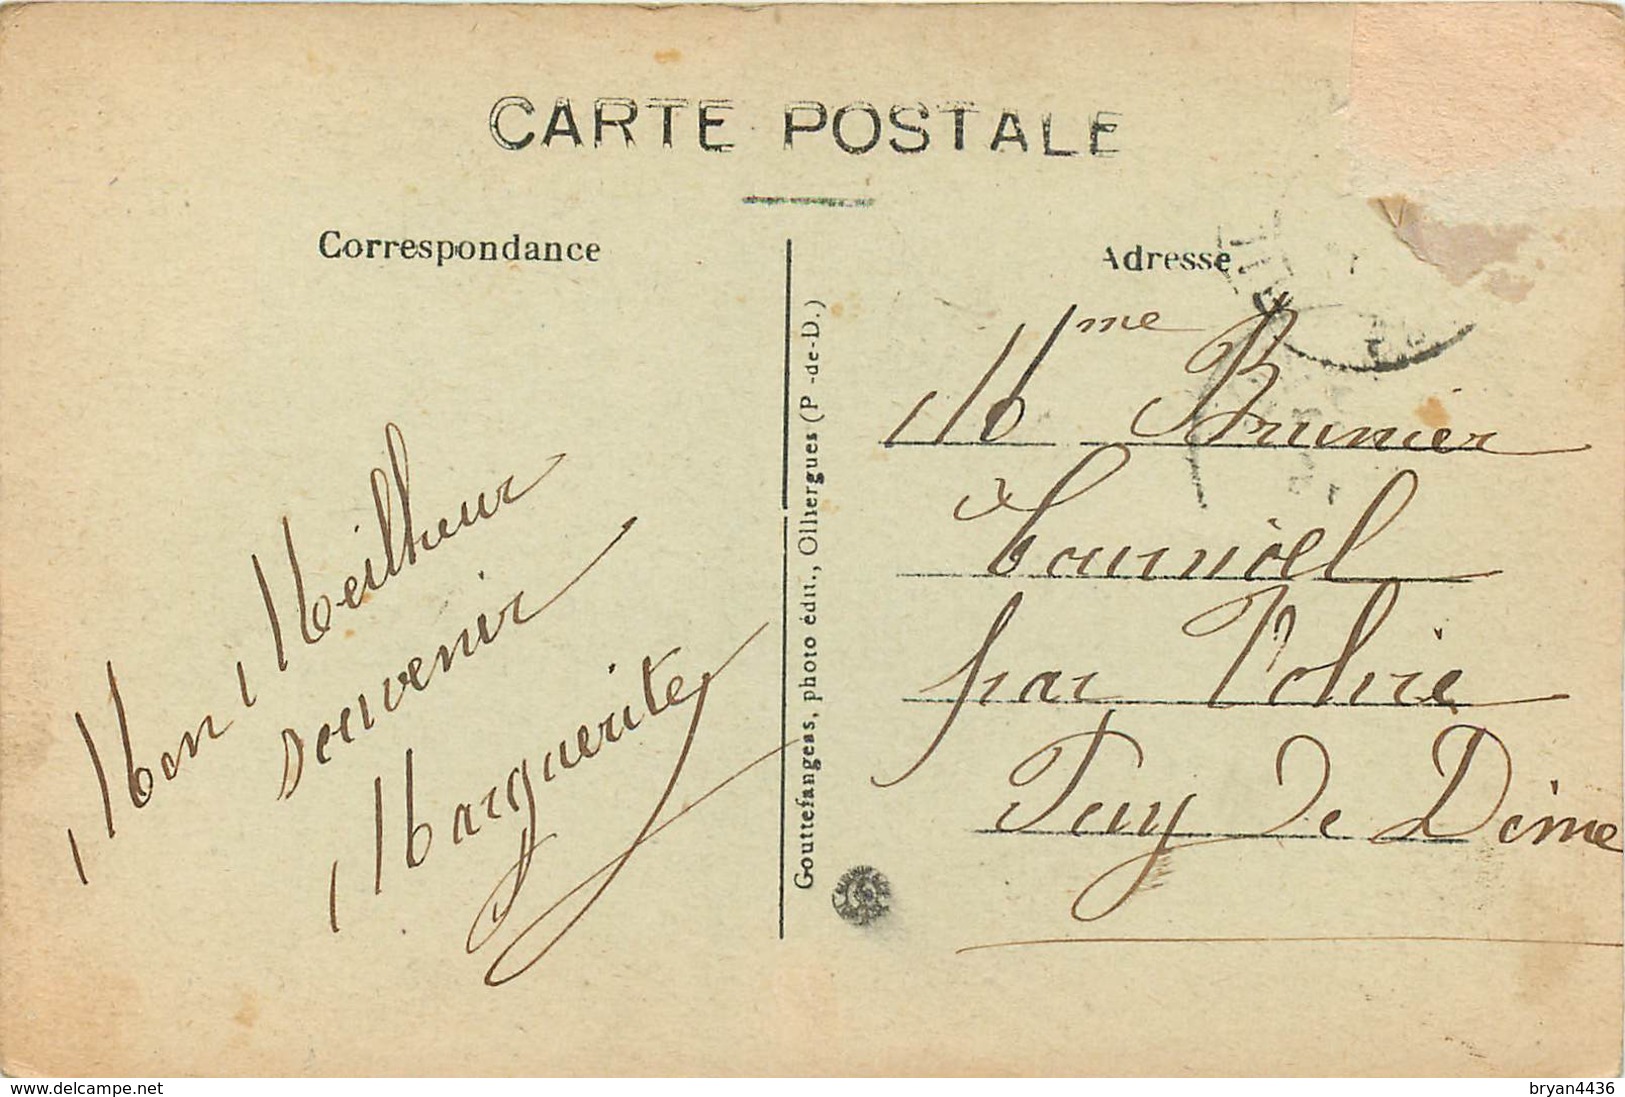 CARTE POSTALE
Correspondance
Mon Meilheur
souvenir
Marguerite
Gouttefangeas, photo édit., Olliergues (P.-de-D.)
Adresse
Mme Brunier
à Tournoël
par Volvic
Puy de Dôme
www.delcampe.net
bryan4436